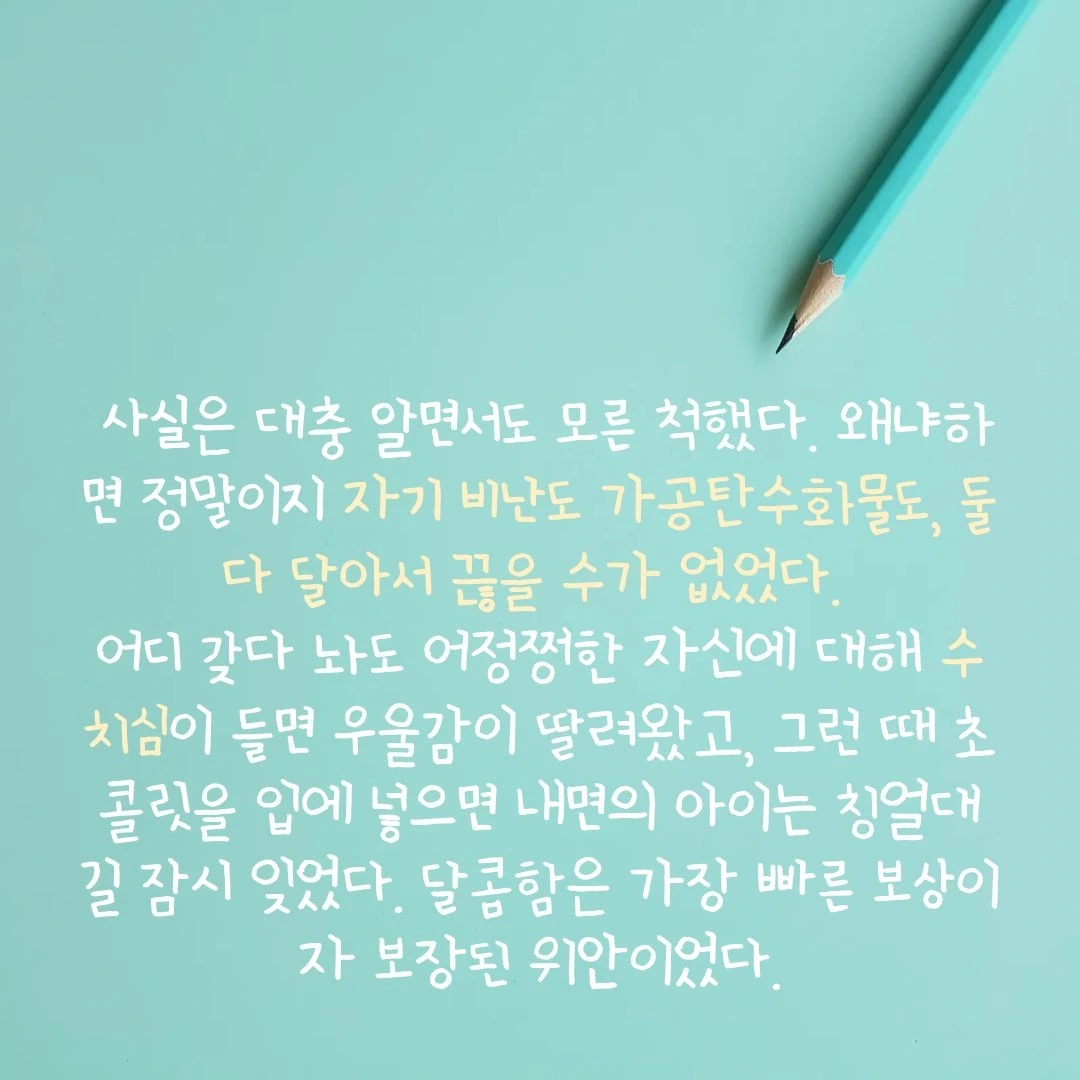 사실은 대충 알면서도 모른 척했다. 왜냐하
면 정말이지 자기 비난도 가공탄수화물도, 둘
다 달아서 끊을 수가 없었다.
어디 갖다 놔도 어정쩡한 자신에 대해 수
치심이 들면 우울감이 딸려왔고, 그런 때 초
콜릿을 입에 넣으면 내면의 아이는 칭얼대
길 잠시 잊었다. 달콤함은 가장 빠른 보상이
자 보장된 위안이었다.